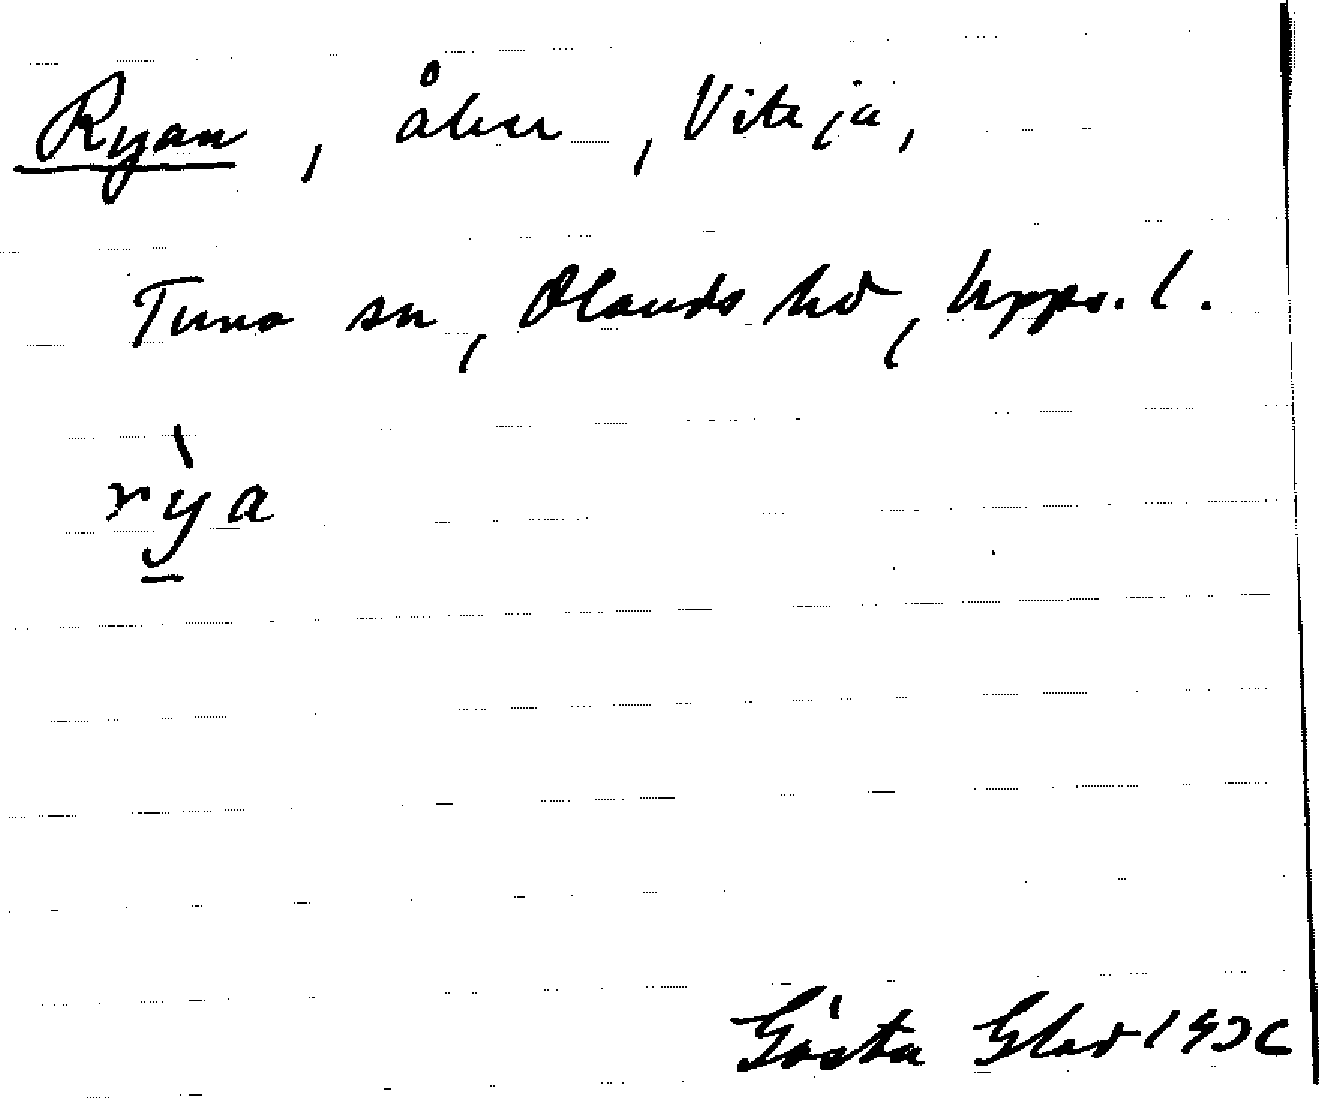 Ryan, åker, Viteja,
Tuna sn, Olands hd, Upps. l.
rỳa
Gösta Glad